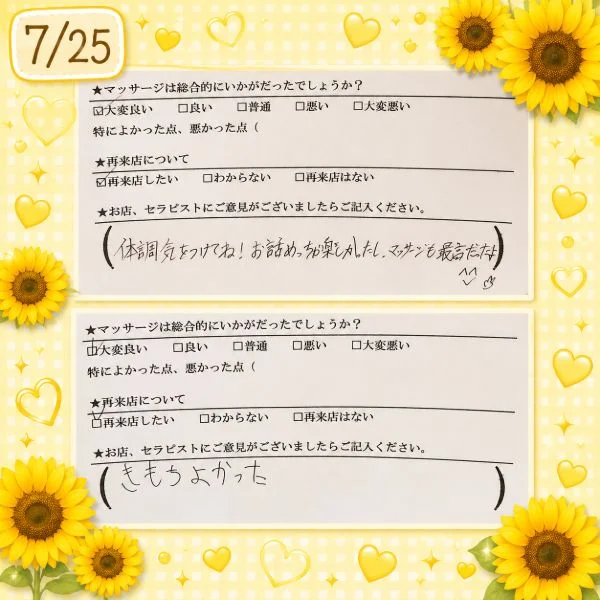 7/25
★マッサージは総合的にいかがだったでしょうか？
☑大変良い □良い □普通 □悪い □大変悪い
特によかった点、悪かった点（
★再来店について
☑再来店したい □わからない □再来店はない
★お店、セラピストにご意見がございましたらご記入ください。
(体調気をつけてね！お話めっちゃ楽しかったし、マッサージも最高だったよ)
^^
★マッサージは総合的にいかがだったでしょうか？
☑大変良い □良い □普通 □悪い □大変悪い
特によかった点、悪かった点（
★再来店について
☑再来店したい □わからない □再来店はない
★お店、セラピストにご意見がございましたらご記入ください。
(きもちよかった)